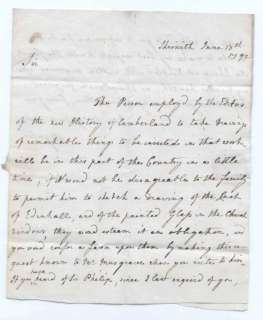 Skirwith June 15th
1792
Sir
The Person employed by the Editors
of the new History of Cumberland to take Drawings
of remarkable things to be inserted in that work
will be in this part of the Country in a little
time, if it would not be disagreeable to the Family
to permit him to sketch a drawing of the Luck
of Edenhall, and of the painted Glass in the Church
windows they would esteem it an obligation, &
you would confer a favor upon them by making this re=
quest known to Mr Musgrave when you write to him
If you have heard of Sir Philip, since I last enquired of you,